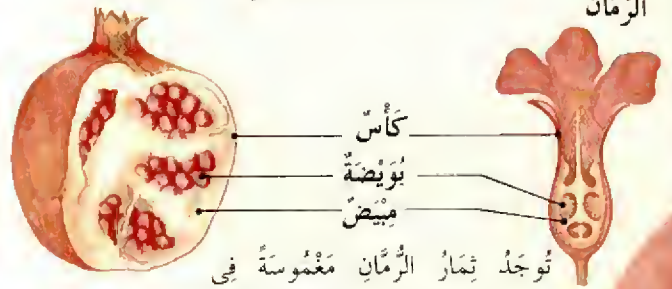 الرمان
كَأْسٌ
بُوَيْضَةٌ
مِبْيَضٌ
تُوجَدُ ثِمَارُ الرُّمَّانِ مَغْمُوسَةً فِى